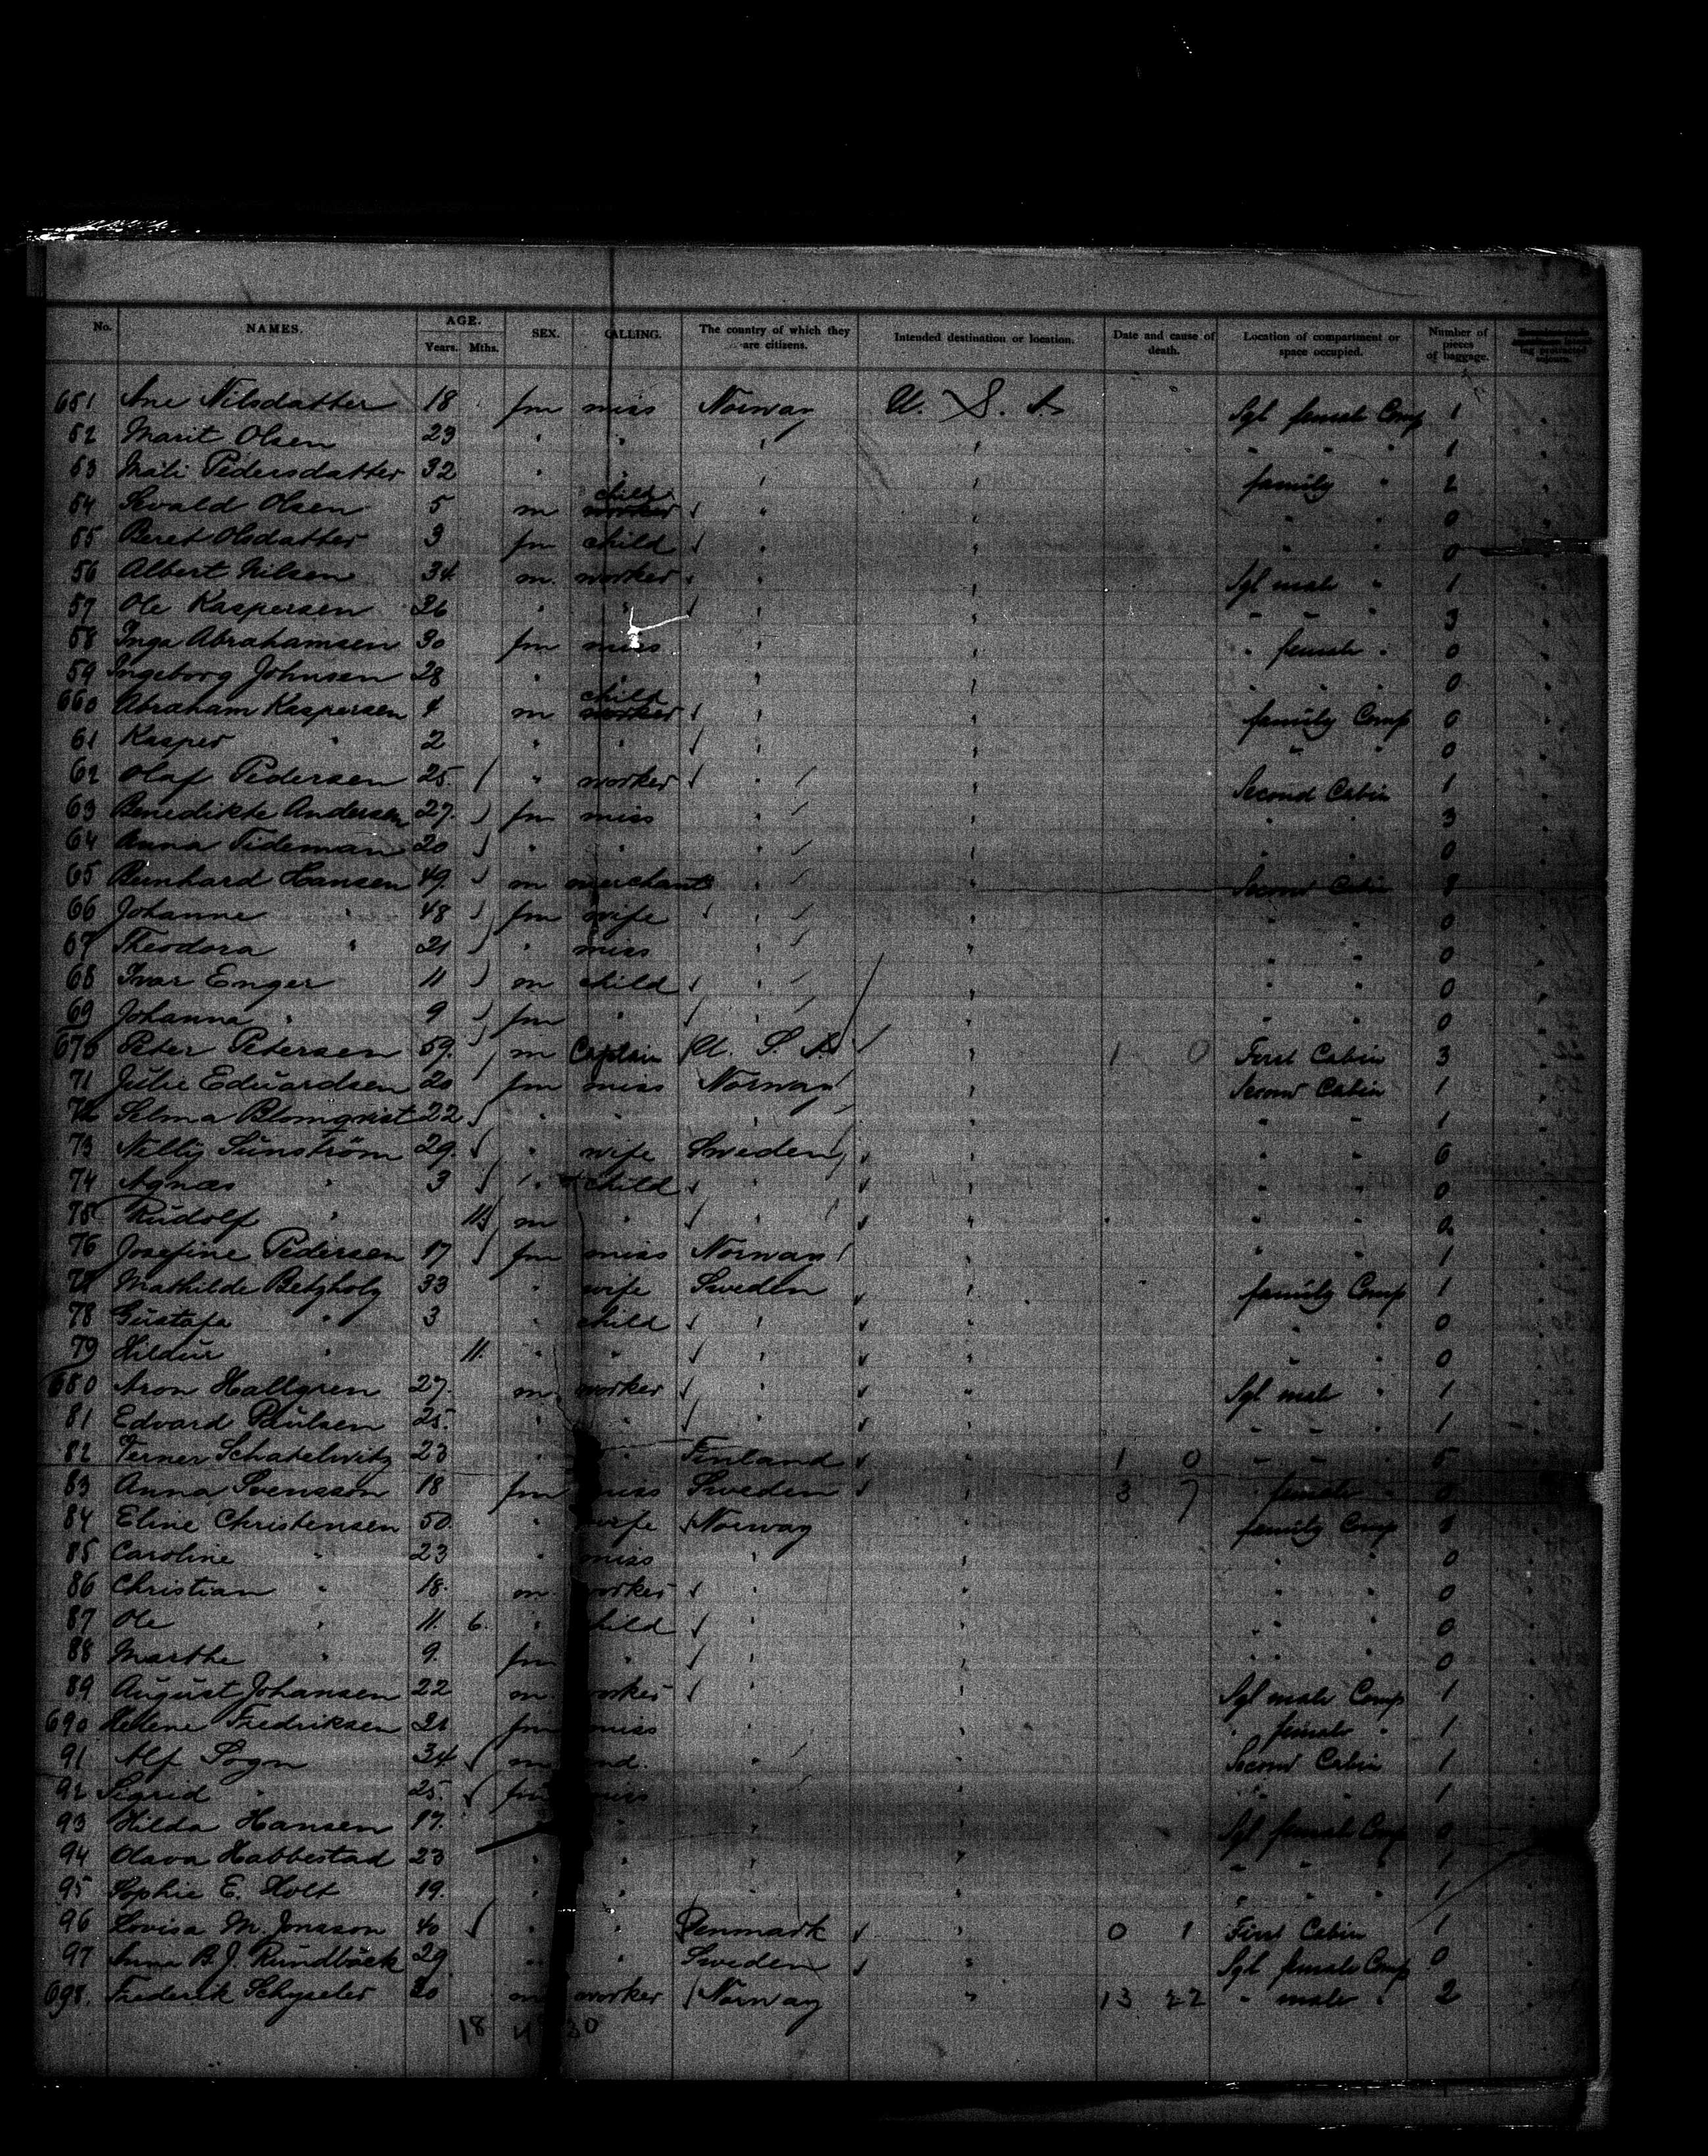 No. NAMES. AGE. Years. Mths. SEX. CALLING. The country of which they are citizens. Intended destination or location. Date and cause of death. Location of compartment or space occupied. Number of pieces of baggage.
651 Ane Nilsdatter 18 fm miss Norway U. S. A. Sgl female Comp 1
52 Marit Olsen 23 " " " " " " " 1
53 Mali Pedersdatter 32 " " " " family " 2
54 Sevald Olsen 5 m child worker " " " " 0
55 Beret Olsdatter 3 fm child " " " " 0
56 Albert Nilsen 34 m. worker " " Sgl male " 1
57 Ole Kaspersen 36 " " " " " " " 3
58 Inga Abrahamsen 30 fm miss " " " female " 0
59 Ingeborg Johnsen 28 " " " " " " " 0
660 Abraham Kaspersen 4 m child worker " " family Comp 0
61 Kasper " 2 " " " " " " 0
62 Olaf Pedersen 25. " worker " " Second Cabin 1
63 Benedikte Andersen 27. fm miss " " " " 3
64 Anna Tideman 20 " " " " " " 0
65 Bernhard Hansen 49. m merchant " " Second Cabin 8
66 Johanne " 48 fm wife " " " " 0
67 Theodora " 21 " miss " " " " 0
68 Ivar Enger 11 m child " " " " 0
69 Johanna " 9 fm " " " " " 0
670 Peter Petersen 59. m Captain U. S. A. " 1 0 First Cabin 3
71 Julie Eduardsen 20 fm miss Norway " Second Cabin 1
72 Selma Blomqvist 22 " " " " " " 1
73 Nelly Sunström 29. " wife Sweden " " " 6
74 Agnes " 3 " child " " " " 0
75 Rudolf " 11 m " " " " " 0
76 Josefine Pedersen 17 fm miss Norway " " " 1
77 Mathilde 33 " wife Sweden " family Comp 1
78 Gustafa " 3 " child " " " " 0
79 Hildur " 11. " " " " " " 0
680 Aron Hallgren 27. m. worker " " Sgl male " 1
81 Edvard Paulsen 25. " " " " " " " 1
82 Verner 23 " " Finland " 1 0 " " " 5
83 Anna Svensson 18 fm miss Sweden " 3 7 " female "
84 Eline Christensen 50. " wife Norway " family Comp
85 Caroline " 23 " miss " " " " 0
86 Christian " 18. m worker " " " " 0
87 Ole " 11. 6. " child " " " " 0
88 Marthe " 9. fm " " " " " 0
89 August Johansen 22 m. worker " " Sgl male Comp 1
690 Helene Fredriksen 21 fm miss " " " female " 1
91 Alf Sogn 34 m " " Second Cabin 1
92 Sigrid " 25. fm miss " " " " 1
93 Hilda Hansen 17. " " " " Sgl female Comp 0
94 Olava Habbestad 23 " " " " " " " 1
95 Sophie E. Holt 19. " " " " " " " 1
96 Lovisa M. Jonsson 40 " " Denmark " 0 1 First Cabin 1
97 Anna B. J. Rundbäck 29 " " Sweden " Sgl female Comp 0
698. Frederik 20 m worker Norway " 13 22 " male " 2
18 11 30